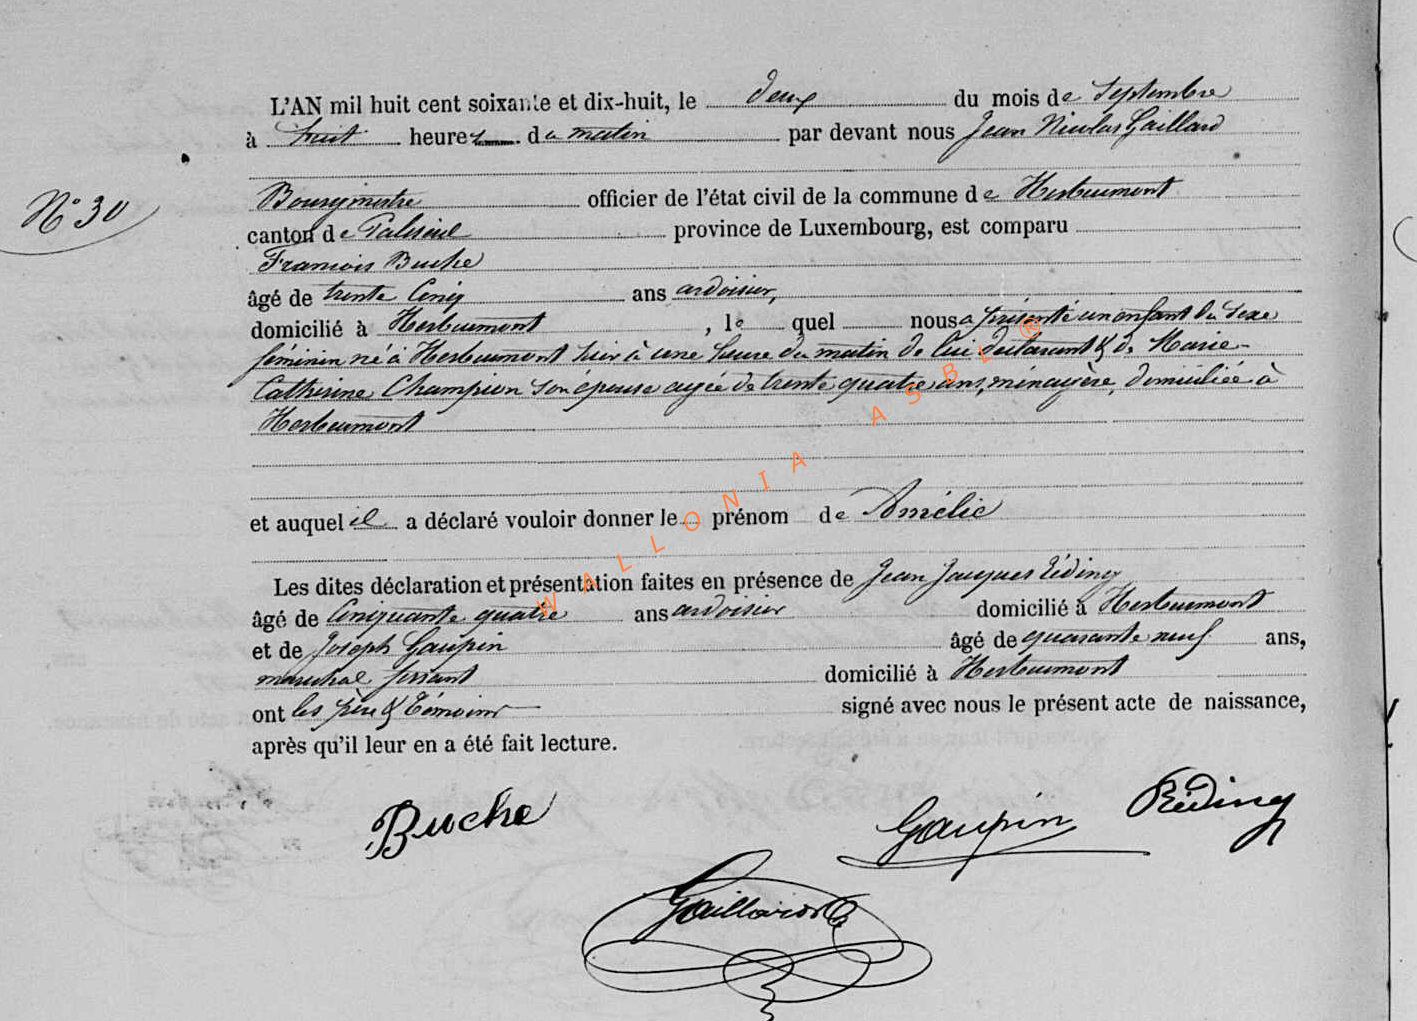 L'AN mil huit cent soixante et dix-huit, le deux du mois de Septembre
à huit heures du matin par devant nous Jean Nicolas Gaillard
N° 30
Bourgmestre officier de l'état civil de la commune de Herbeumont
canton de Paliseul province de Luxembourg, est comparu
Francois Buche
âgé de trente cinq ans ardoisier,
domicilié à Herbeumont, lequel nous a présenté un enfant du sexe
féminin né à Herbeumont hier à une heure du matin de lui déclarant & de Marie-
Catherine Champion son épouse agée de trente quatre ans, ménagère, domiciliée à
Herbeumont
et auquel il a déclaré vouloir donner le prénom de Amélie
Les dites déclaration et présentation faites en présence de Jean Jacques Réding
âgé de cinquante quatre ans ardoisier domicilié à Herbeumont
et de Joseph Gaupin âgé de quarante neuf ans,
maréchal ferrant domicilié à Herbeumont
ont les père & témoins signé avec nous le présent acte de naissance,
après qu'il leur en a été fait lecture.
Buche Gaupin Réding
Gaillard
WALLONIA ASBL ®